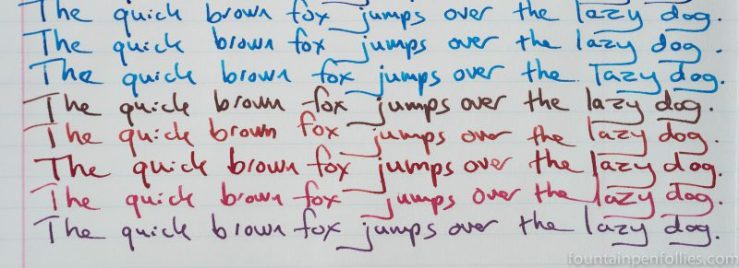 The quick brown fox jumps over the lazy dog.
The quick brown fox jumps over the lazy dog.
The quick brown fox jumps over the lazy dog.
The quick brown fox jumps over the lazy dog.
The quick brown fox jumps over the lazy dog.
The quick brown fox jumps over the lazy dog.
The quick brown fox jumps over the lazy dog.
The quick brown fox jumps over the lazy dog.
fountainpenfollies.com